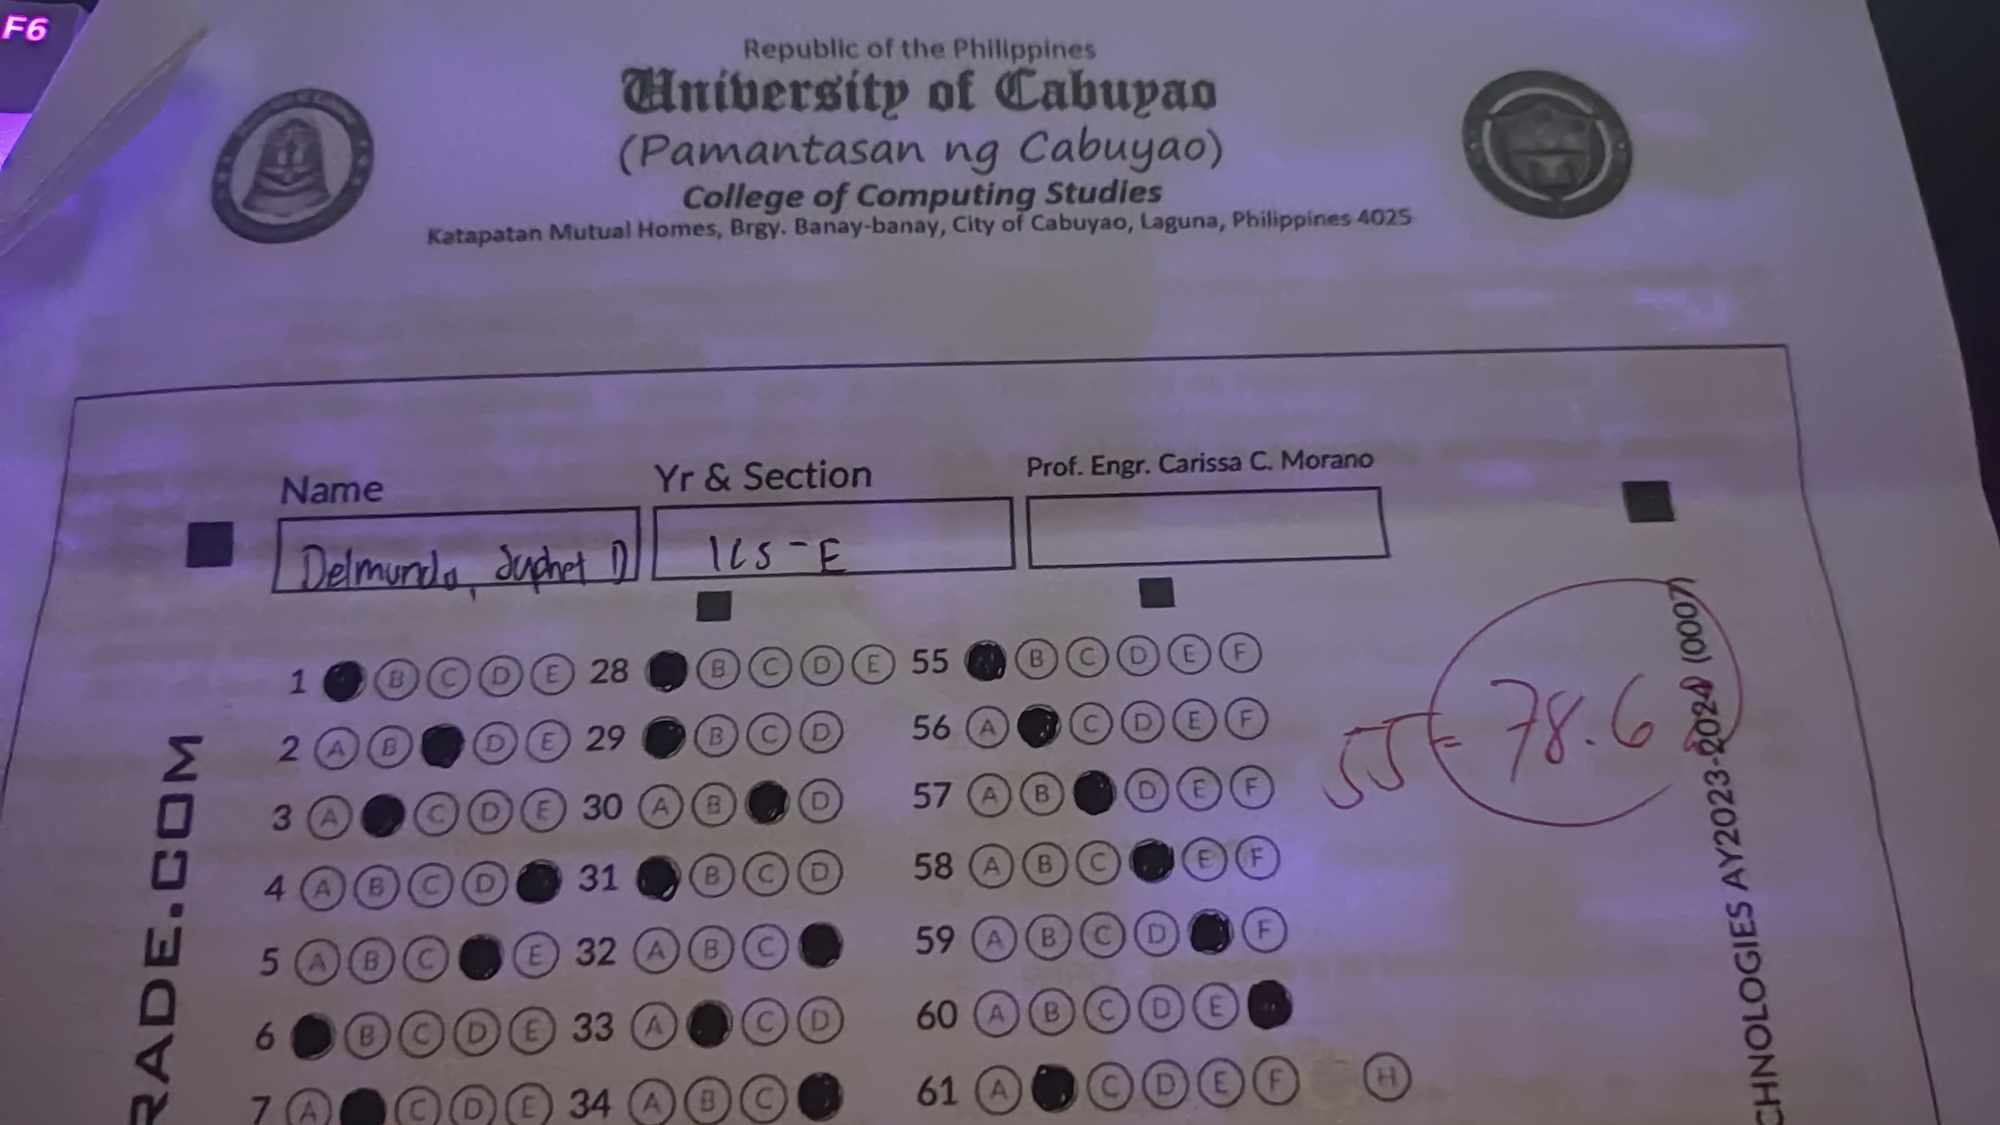 F6
Republic of the Philippines
University of Cabuyao
(Pamantasan ng Cabuyao)
College of Computing Studies
Katapatan Mutual Homes, Brgy. Banay-banay, City of Cabuyao, Laguna, Philippines 4025
Name
Yr & Section
Prof. Engr. Carissa C. Morano
Delmundo, D
1CS-E
1 B C D E 28 B C D E 55 B C D E F
2 A B D E 29 B C D 56 A C D E F
3 A C D E 30 A B D 57 A B D E F
4 A B C D 31 B C D 58 A B C E F
5 A B C E 32 A B C 59 A B C D F
6 B C D E 33 A C D 60 A B C D E
7 A C D E 34 A B C 61 A C D E F H
55 = 78.6
RADE.COM
CHNOLOGIES AY2023-2024 (0007)